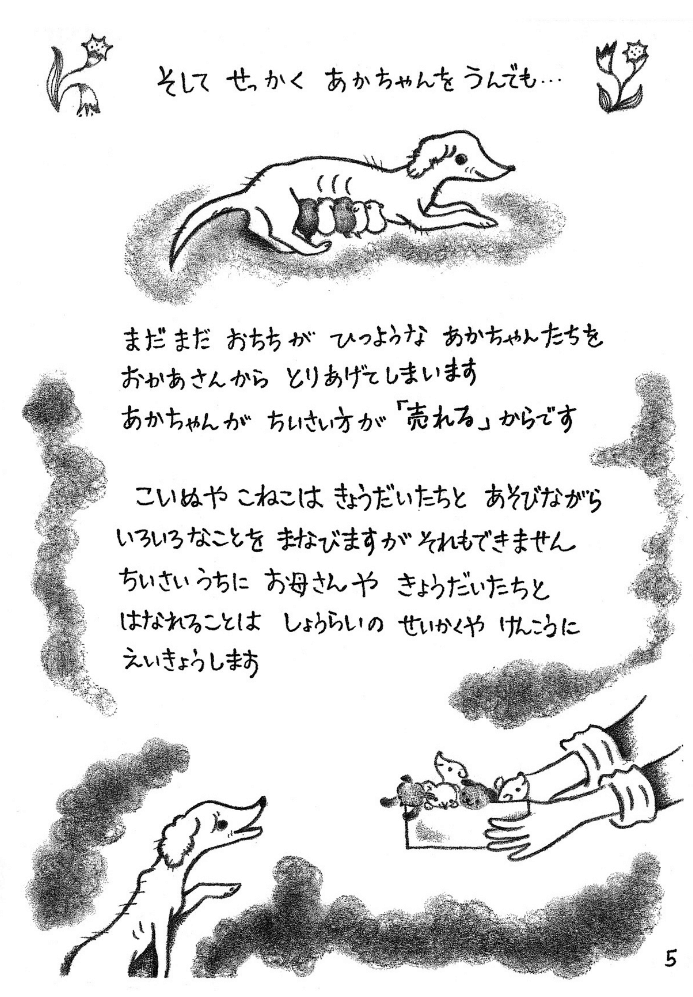 そして せっかく あかちゃんを うんでも…
まだまだ おちちが ひつような あかちゃんたちを
おかあさんから とりあげてしまいます
あかちゃんが ちいさい方が「売れる」からです
こいぬや こねこは きょうだいたちと あそびながら
いろいろなことを まなびますが それもできません
ちいさいうちに お母さんや きょうだいたちと
はなれることは しょうらいの せいかくや けんこうに
えいきょうします
5